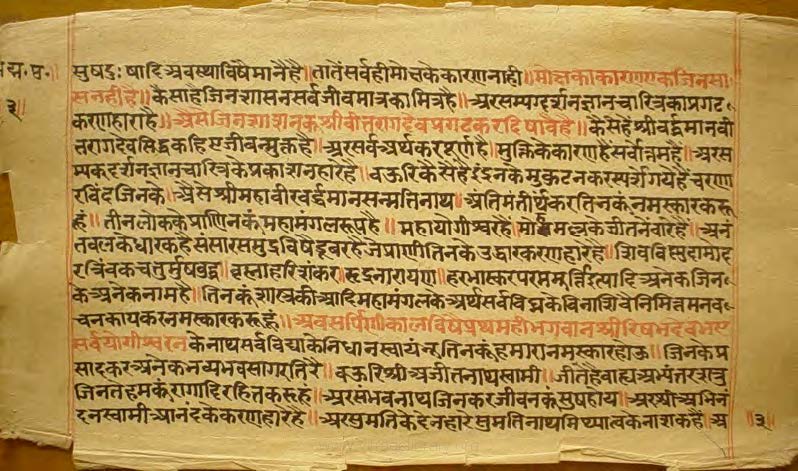 पद्म.पु.॥
३॥
सुषदुःषादि अवस्थाविषैमानैहै॥तातेंसर्वहीमोक्षकेकारणनाही॥मोक्षकाकारणएकजिनसा
सनहीहै॥कैसाहैजिनशासनसर्वजीवमात्रकामित्रहै॥अरसम्यग्दर्शनज्ञानचारित्रकाप्रगट
करणहाराहै॥अैसेजिनशाशनकूंश्रीवीतरागदेवप्रगटकरदिषावैहै॥कैसेहैंश्रीवर्द्धमानवी
तरागदेवसिद्धकहिएजीवन्मुक्तहै॥अरसर्वअर्थकरपूर्णहै॥मुक्तिकेकारणहैसर्वोत्तमहै॥अरस
म्यकदर्शनज्ञानचारित्रकेप्रकाशनहारेहै॥वऊरिकैसेहैइंद्रनकेमुकुटनकरस्पर्शेगयेहैंचरणा
रविंदजिनके॥अैसेश्रीमहावीरवर्द्धमानसन्मतिनाथ॥अंतिमतीर्थंकरतिनकूंनमस्कारकरू
हूं॥तीनलोककेप्राणिनकूंमहामंगलरूपहै॥महायोगीश्वरहैं॥मोहमल्लकेजीतनेंवारेहैं॥अनं
तबलकेधारकहैसंसारसमुद्रविषेडूबरहेजेप्राणीतिनकेउद्धारकरणहारेहै॥शिवविस्नुदामोद
रत्रिंबकचतुर्मुषबुद्ध॥ब्रह्माहरिशंकर॥रुद्रनारायण॥हरभास्करपरममूर्त्तिइत्यादिअनेकजिन
केअनेकनामहै॥तिनकूंशास्त्रकीआदिमहामंगलकेअर्थसर्वविघ्नकेविनाशिवेनिमित्तमनव
चनकायकरनमस्कारकरूहूं॥अवसर्पिणीकालविषैप्रथमहीभगवानश्रीरिषभदेवभए
सर्वयोगीश्वरनकेनाथसर्वविद्याकेनिधानस्वायंभूतिनकूंहमारानमस्कारहोऊ॥जिनकेप्र
सादकरअनेकभव्यभवसागरतिरै॥वऊरिश्रीअजीतनाथस्वामी॥जीतेहैवाह्यअभ्यंतरशत्रु
जिनतेहमकूंरागादिरहितकरूहूं॥अरसंभवनाथजिनकरजीवनकूंसुषहोय॥अरश्रीअभिनं
दनस्वामीआनंदकेकरणहारेहै॥अरसुमतिकेदेनहारेसुमतिनाथमिथ्यात्वकेनाशकहैं॥अ
॥३॥